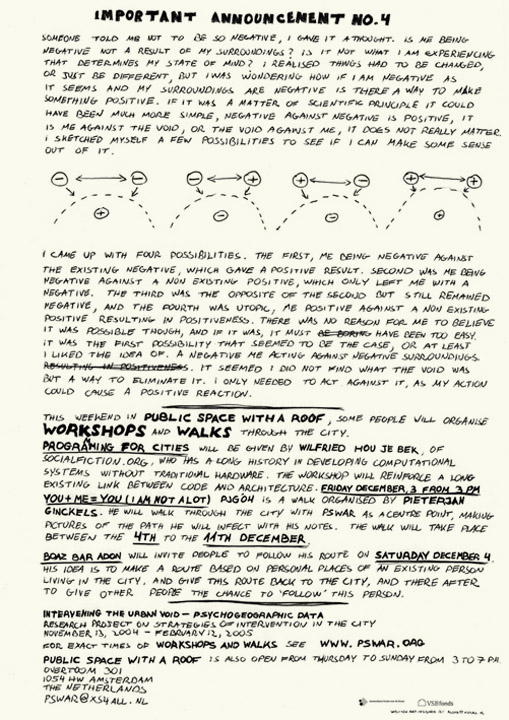 IMPORTANT ANNOUNCEMENT NO.4
SOMEONE TOLD ME NOT TO BE SO NEGATIVE, I GAVE IT A THOUGHT. IS ME BEING
NEGATIVE NOT A RESULT OF MY SURROUNDINGS? IS IT NOT WHAT I AM EXPERIENCING
THAT DETERMINES MY STATE OF MIND? I REALISED THINGS HAD TO BE CHANGED,
OR JUST BE DIFFERENT, BUT I WAS WONDERING HOW IF I AM NEGATIVE AS
IT SEEMS AND MY SURROUNDINGS ARE NEGATIVE IS THERE A WAY TO MAKE
SOMETHING POSITIVE. IF IT WAS A MATTER OF SCIENTIFIC PRINCIPLE IT COULD
HAVE BEEN MUCH MORE SIMPLE, NEGATIVE AGAINST NEGATIVE IS POSITIVE, IT
IS ME AGAINST THE VOID, OR THE VOID AGAINST ME, IT DOES NOT REALLY MATTER.
I SKETCHED MYSELF A FEW POSSIBILITIES TO SEE IF I CAN MAKE SOME SENSE
OUT OF IT.
- - - + + - + +
+ - - +
I CAME UP WITH FOUR POSSIBILITIES. THE FIRST, ME BEING NEGATIVE AGAINST
THE EXISTING NEGATIVE, WHICH GAVE A POSITIVE RESULT. SECOND WAS ME BEING
NEGATIVE AGAINST A NON EXISTING POSITIVE, WHICH ONLY LEFT ME WITH A
NEGATIVE. THE THIRD WAS THE OPPOSITE OF THE SECOND BUT STILL REMAINED
NEGATIVE, AND THE FOURTH WAS UTOPIC, ME POSITIVE AGAINST A NON EXISTING
POSITIVE RESULTING IN POSITIVENESS. THERE WAS NO REASON FOR ME TO BELIEVE
IT WAS POSSIBLE THOUGH, AND IF IT WAS, IT MUST BE BORING HAVE BEEN TOO EASY.
IT WAS THE FIRST POSSIBILITY THAT SEEMED TO BE THE CASE, OR AT LEAST
I LIKED THE IDEA OF. A NEGATIVE ME ACTING AGAINST NEGATIVE SURROUNDINGS.
RESULTING IN POSITIVENESS. IT SEEMED I DID NOT FIND WHAT THE VOID WAS
BUT A WAY TO ELIMINATE IT. I ONLY NEEDED TO ACT AGAINST IT, AS MY ACTION
COULD CAUSE A POSITIVE REACTION.
THIS WEEKEND IN PUBLIC SPACE WITH A ROOF, SOME PEOPLE WILL ORGANISE
WORKSHOPS AND WALKS THROUGH THE CITY.
PROGRAMING FOR CITIES WILL BE GIVEN BY WILFRIED HOU JE BEK, OF
SOCIALFICTION.ORG, WHO HAS A LONG HISTORY IN DEVELOPING COMPUTATIONAL
SYSTEMS WITHOUT TRADITIONAL HARDWARE. THE WORKSHOP WILL REINFORCE A LONG
EXISTING LINK BETWEEN CODE AND ARCHITECTURE. FRIDAY DECEMBER, 3 FROM 3 PM
YOU+ME=YOU (I AM NOT ALOT) PJGOH IS A WALK ORGANISED BY PIETERJAN
GINCKELS. HE WILL WALK THROUGH THE CITY WITH PSWAR AS A CENTRE POINT, MAKING
PICTURES OF THE PATH HE WILL INFECT WITH HIS NOTES. THE WALK WILL TAKE PLACE
BETWEEN THE 4TH TO THE 11TH DECEMBER.
BOAZ BAR ADON WILL INVITE PEOPLE TO FOLLOW HIS ROUTE ON SATURDAY DECEMBER 4.
HIS IDEA IS TO MAKE A ROUTE BASED ON PERSONAL PLACES OF AN EXISTING PERSON
LIVING IN THE CITY. AND GIVE THIS ROUTE BACK TO THE CITY, AND THERE AFTER
TO GIVE OTHER PEOPLE THE CHANCE TO 'FOLLOW' THIS PERSON.
INTERVENING THE URBAN VOID – PSYCHOGEOGRAPHIC DATA
RESEARCH PROJECT ON STRATEGIES OF INTERVENTION IN THE CITY
NOVEMBER 13, 2004 – FEBRUARY 12, 2005
FOR EXACT TIMES OF WORKSHOPS AND WALKS SEE WWW.PSWAR.ORG
PUBLIC SPACE WITH A ROOF IS ALSO OPEN FROM THURSDAY TO SUNDAY FROM 3 TO 7 PM.
OVERTOOM 301
1054 HW AMSTERDAM
THE NETHERLANDS
PSWAR@XS4ALL.NL
VSBfonds